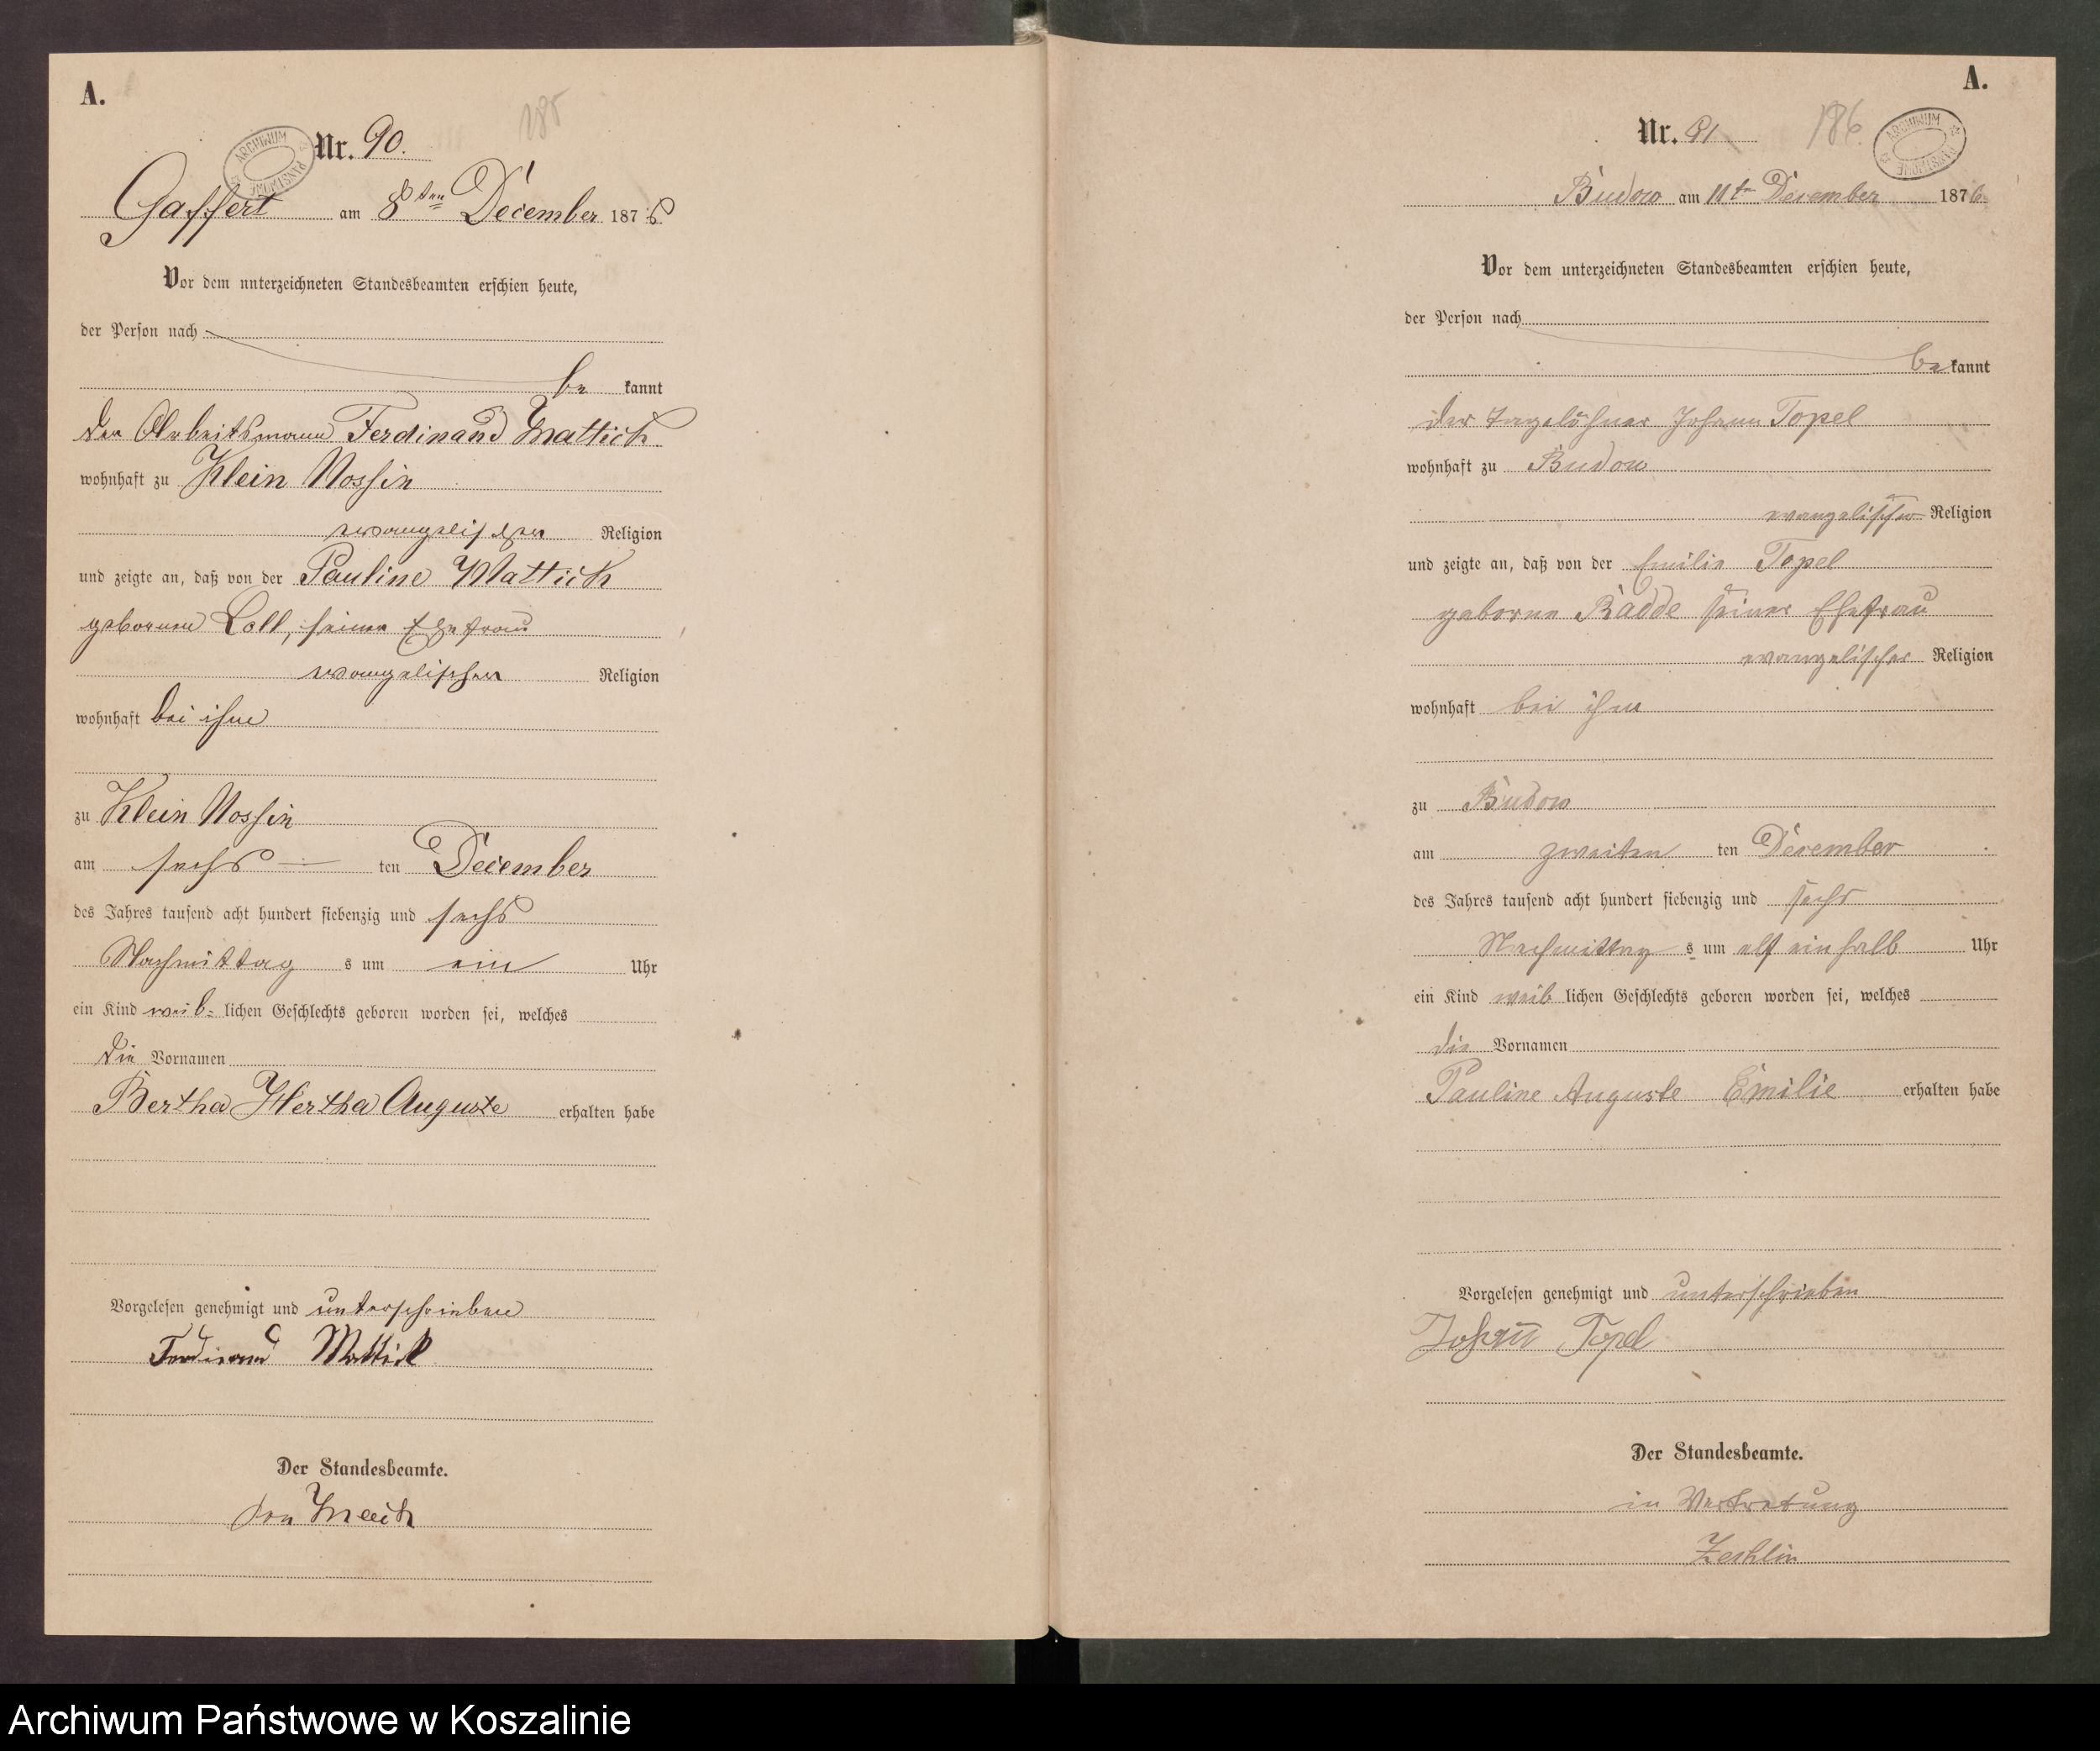 A.
185
Nr. 90.
ARCHIWUM PAŃSTWOWE
Gaffert am 8ten December 1876
Vor dem unterzeichneten Standesbeamten erschien heute,
der Person nach
be kannt
der Arbeitsmann Ferdinand Mattick
wohnhaft zu Klein Nossin
evangelischer Religion
und zeigte an, daß von der Pauline Mattick
gebornen Loll, seiner Ehefrau
evangelischer Religion
wohnhaft bei ihm
zu Klein Nossin
am sechs ten December
des Jahres tausend acht hundert siebenzig und sechs
Nachmittag s um ein Uhr
ein Kind weib- lichen Geschlechts geboren worden sei, welches
die Vornamen
Bertha Hertha Auguste erhalten habe
Vorgelesen genehmigt und unterschrieben
Ferdinand Mattick
Der Standesbeamte.
A.
186
Nr. 91
ARCHIWUM PAŃSTWOWE
Budow am 11te December 1876
Vor dem unterzeichneten Standesbeamten erschien heute,
der Person nach
be kannt
der Tagelöhner Johann Topel
wohnhaft zu Budow
evangelischer Religion
und zeigte an, daß von der Emilie Topel
geborne Radde seiner Ehefrau
evangelischer Religion
wohnhaft bei ihm
zu Budow
am zweiten ten December
des Jahres tausend acht hundert siebenzig und sechs
Nachmittag s um elf ein halb Uhr
ein Kind weib lichen Geschlechts geboren worden sei, welches
die Vornamen
Pauline Auguste Emilie erhalten habe
Vorgelesen genehmigt und unterschrieben
Johann Topel
Der Standesbeamte.
in Vertretung
Zechlin
Archiwum Państwowe w Koszalinie